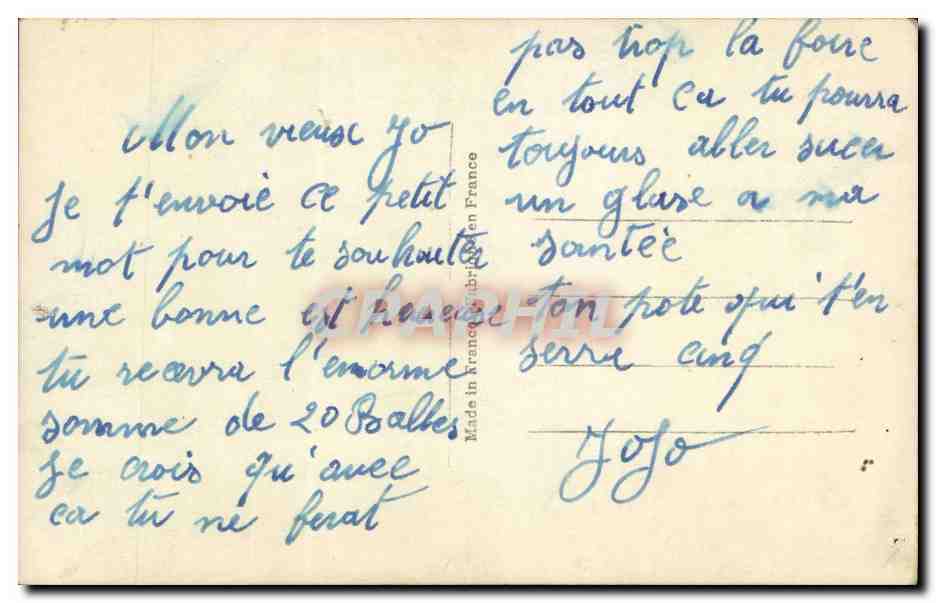 Mon vieux Jo
Je t'envoie ce petit
mot pour te souhaiter
une bonne est heureuse
tu recevra l'enorme
somme de 20 Balles
Je crois qu'avec
ca tu ne ferat
pas trop la foire
en tout ca tu pourra
toujours aller sucer
un glase a ma
santée
ton pote qui t'en
serra cinq
JoJo
Made in France Fabriqué en France
CPAPHIL